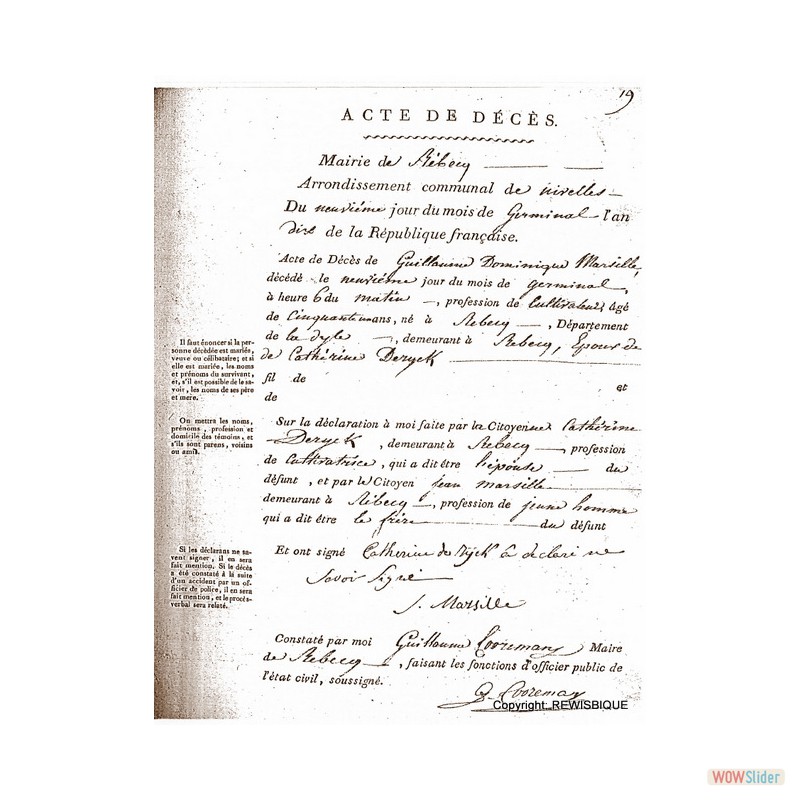 19
ACTE DE DÉCÈS.
Mairie de Rébecq
Arrondissement communal de nivelles
Du neuvième jour du mois de Germinal l'an
dix de la République française.
Acte de Décès de Guillaume Dominique Marsille,
décédé le neuvième jour du mois de germinal,
à heure 6 du matin, profession de Cultivateur, âgé
de Cinquante un ans, né à Rebecq, Département
de la dyle, demeurant à Rebecq, Epoux de
de Cathérine Deryck
fil de et
de
Il faut énoncer si la per-
sonne décédée est mariée,
veuve ou célibataire; et si
elle est mariée, les noms
et prénoms du survivant,
et, s'il est possible de le sa-
voir, les noms de ses père
et mere.
On mettra les noms,
prénoms, profession et
domicile des témoins, et
s'ils sont parens, voisins
ou amis.
Sur la déclaration à moi faite par la Citoyenne Cathérine
Deryck, demeurant à Rebecq, profession
de Cultivatrice, qui a dit être l'épouse du
défunt, et par le Citoyen jean marsille
demeurant à Rébecq, profession de jeune homme
qui a dit être le frère du défunt
Si les déclarans ne sa-
vent signer, il en sera
fait mention. Si le décès
a été constaté à la suite
d'un accident par un of-
ficier de police, il en sera
fait mention, et le procès-
verbal sera relaté.
Et ont signé Catherine de ryck a declaré ne
Savoir signé
J. Marsille
Constaté par moi Guillaume Cooremans Maire
de Rebecq, faisant les fonctions d'officier public de
l'état civil, soussigné.
G. Cooreman
Copyright: REWISBIQUE
WOWSlider